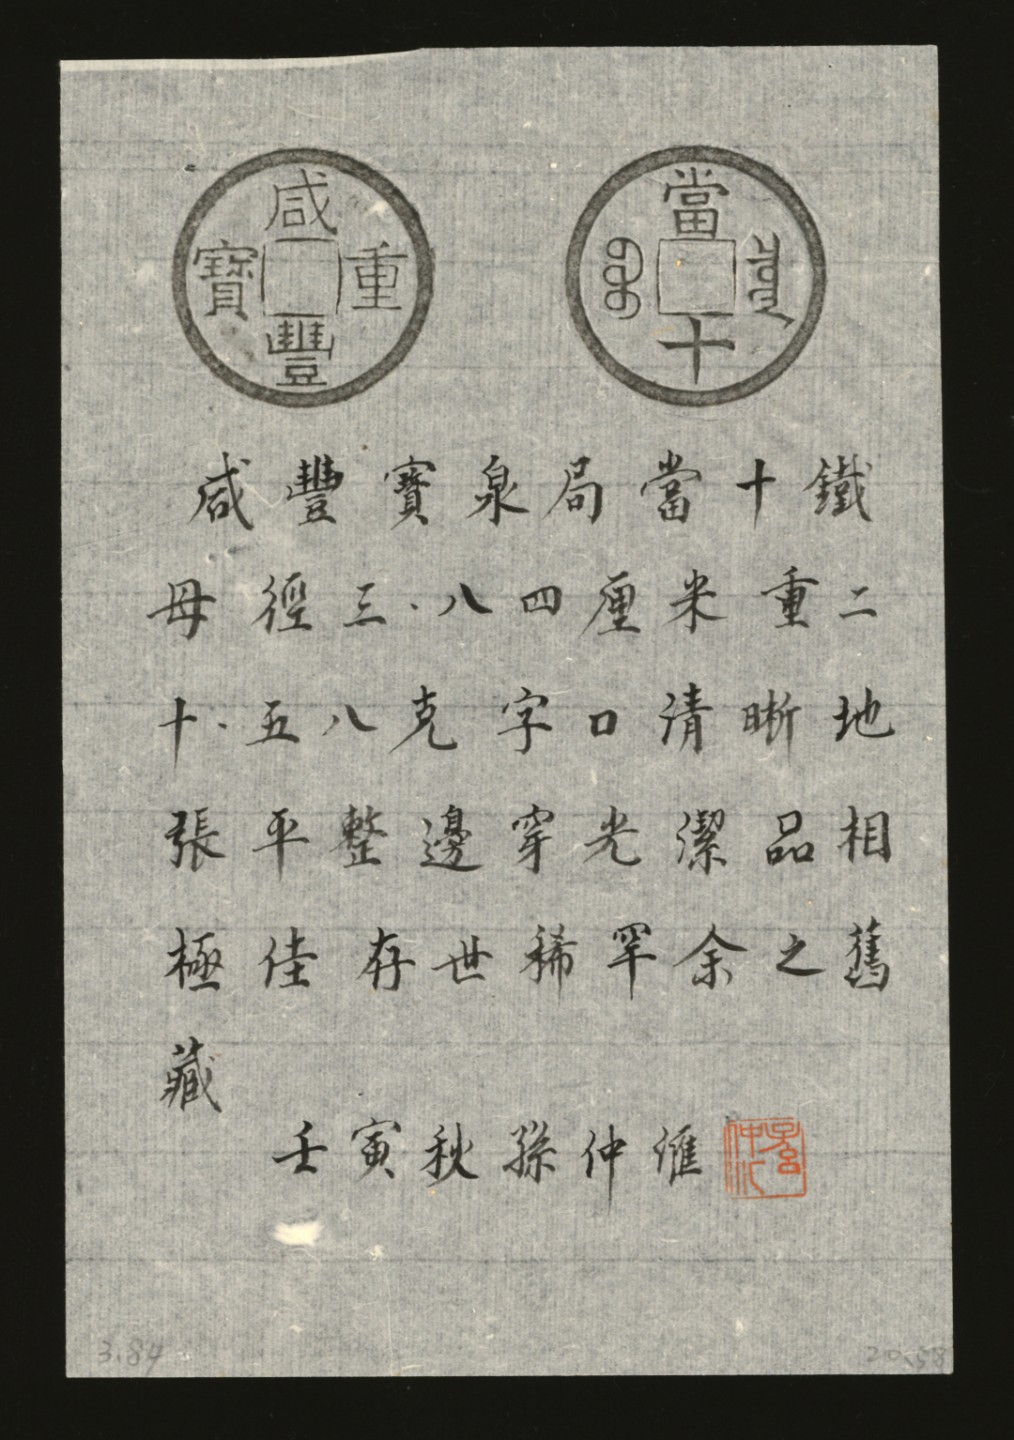 咸豐重寶
當十
咸豐寶泉局當十鐵
母徑三.八四厘米重二
十.五八克字口清晰地
張平整邊穿光潔品相
極佳存世稀罕余之舊
藏
壬寅秋孫仲匯
3.84
20.58